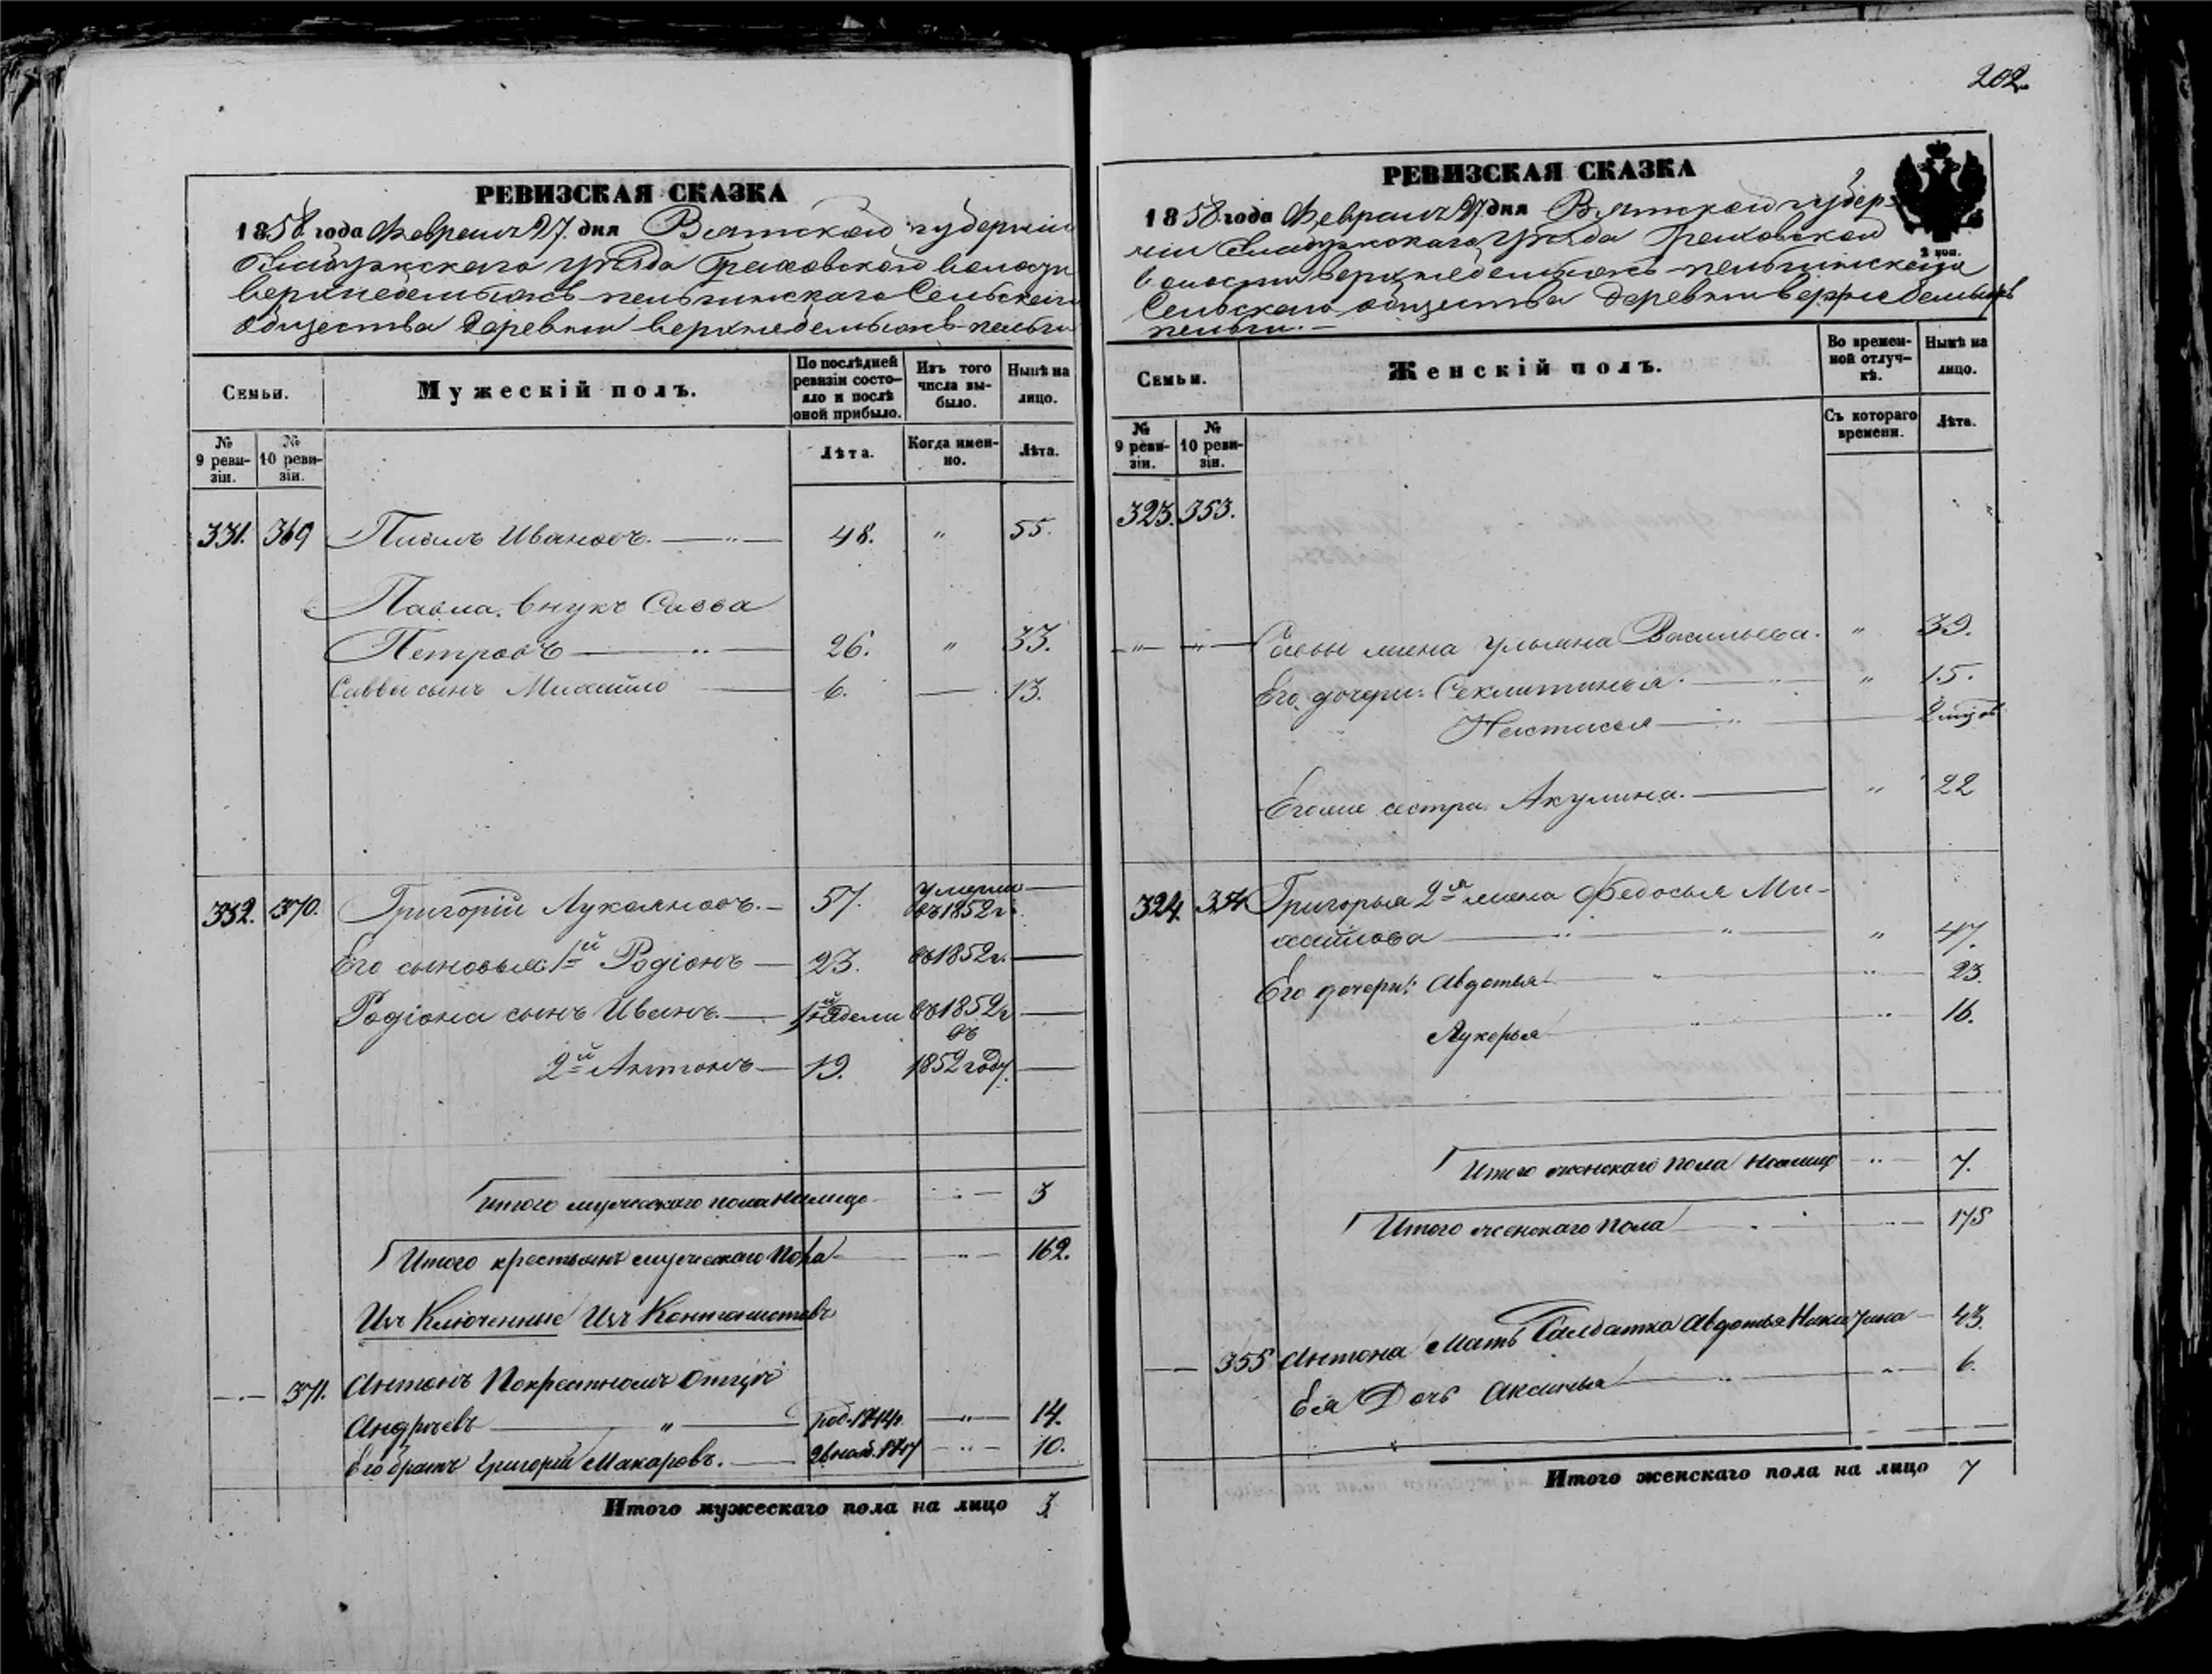 202.
РЕВИЗСКАЯ СКАЗКА
1858 года Февраля 27 дня Вятской губерніи
Елабужскаго уѣзда Граховской волости
верхнеделыжъ-пельгинскаго Сельскаго
общества деревни
Семьи.
Мужескій полъ.
По послѣдней ревизіи состояло и послѣ оной прибыло.
Изъ того числа выбыло.
Нынѣ на лицо.
№ 9 ревизіи.
№ 10 ревизіи.
Лѣта.
Когда именно.
Лѣта.
331. 369 Павелъ Ивановъ. 48. " 55.
Павла внукъ Савва
Петровъ 26. " 33.
Саввы сынъ Михайло 6. 13.
332. 370. Григорій Лукояновъ. 57. умерли въ 1852 г.
Его сыновья 1й Родіонъ 23. въ 1852 г.
Родіона сынъ Иванъ. 1й недели въ 1852 г
2й Антонъ 19. въ 1852 году.
Итого мужескаго пола налицо 3
Итого крестьянъ мужескаго пола 162.
Изъ Кантонистовъ
371. Антонъ Покрестномъ Отцѣ
Андрѣевъ род. 1844 г. " 14.
Его братъ Григорій Макаровъ. 10.
Итого мужескаго пола на лицо 3
РЕВИЗСКАЯ СКАЗКА
1858 года Февраля 27 дня Вятской губер-
ніи Елабужскаго уѣзда Граховской
волости
Сельскаго общества деревни
пельги.
2 коп.
Семьи.
Женскій полъ.
Во временной отлучкѣ.
Нынѣ на лицо.
№ 9 ревизіи.
№ 10 ревизіи.
Съ котораго времени.
Лѣта.
323. 353.
" " Саввы жена Ульяна Васильева. " 39.
Его дочери: Секлитинья. " 15.
Настасья 2 мѣс
Его же сестра Акулина. " 22
324. 354 Григорья 2я жена Федосья Ми-
хайлова " 47.
Его дочери: Авдотья 23.
Лукерья 16.
Итого женскаго пола налицо 7.
Итого женскаго пола 175
355 Антона Мать Салдатка Авдотья Никитина 43.
Ея Дочь Аксинья 6.
Итого женскаго пола на лицо 7